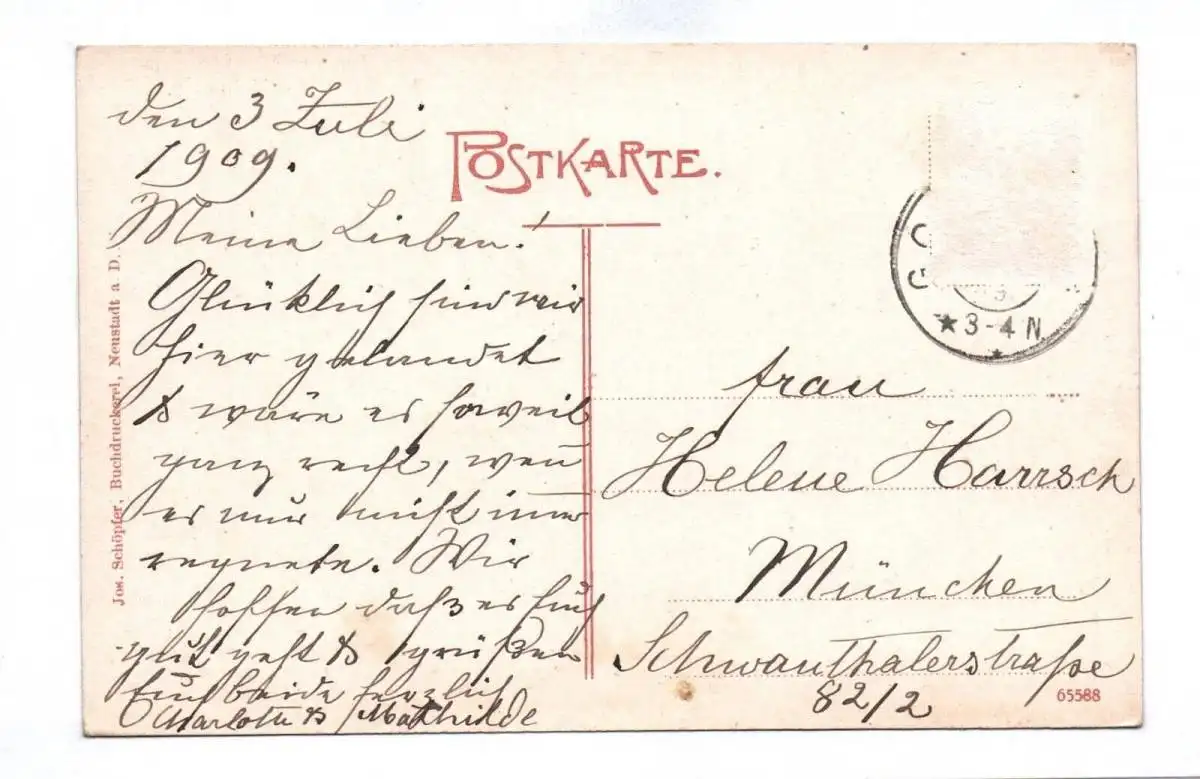 den 3 Juli
1909.
Meine Lieben!
Glücklich sind wir
hier gelandet
& wäre es soweit
ganz recht, wen̄
es nur nicht im̄er
regnete. Wir
hoffen daß es Euch
gut geht & grüßen
Euch beide herzlich
Charlotte & Mathilde
POSTKARTE.
Jos. Schöpfer, Buchdruckerei, Neustadt a D.
★3-4 N
Frau
Helene Harrsch
München
Schwanthalerstraße
82/2
65588